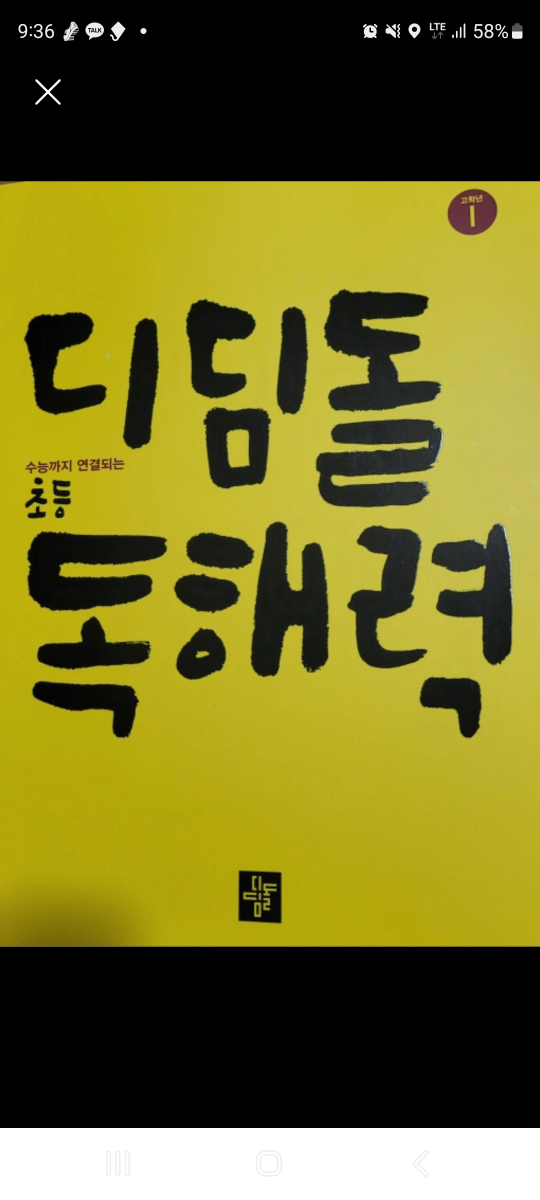 9:36
TALK
LTE
58%
고학년
1
디딤돌
수능까지 연결되는
초등
독해력
디딤돌